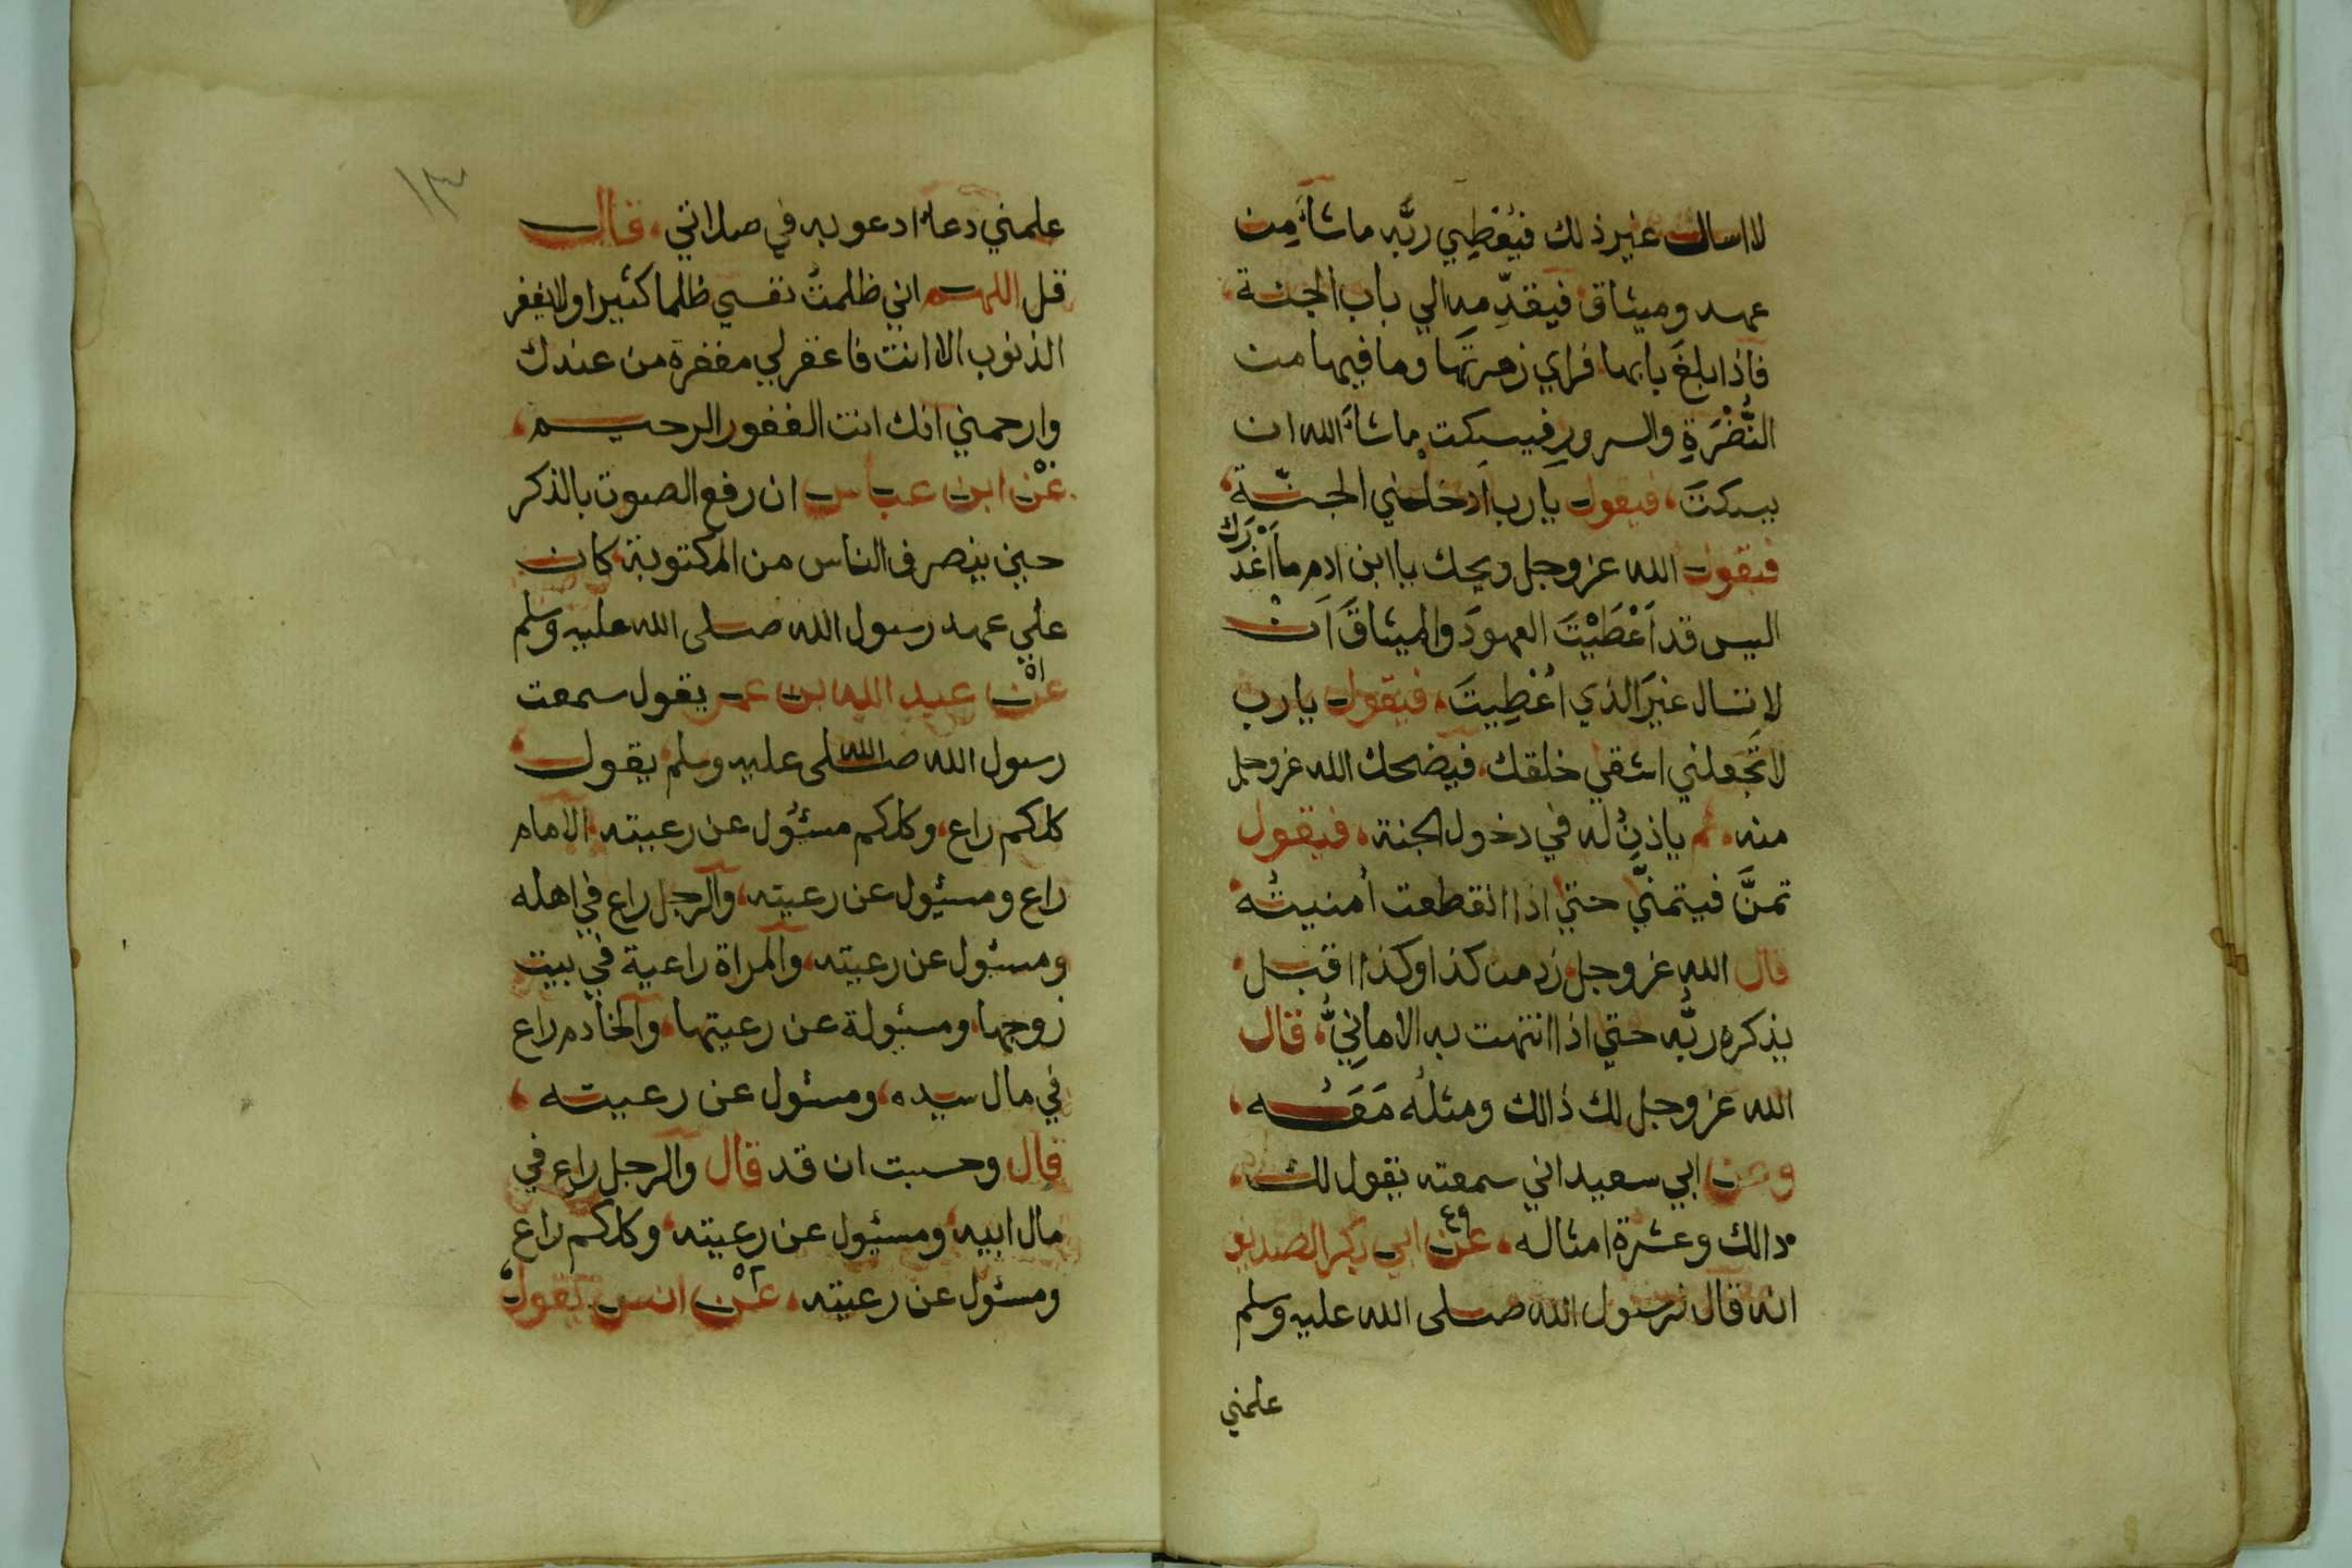 لا اسالك غير ذلك فيُعْطِي ربَّه ما شاءَ مِن
عهد وميثاق فيقدِّمه الي باب الجنة
فاذا بلغَ بابها فراي زهرتَها وما فيها من
النُّضْرَةِ والسرورِ فيسكت ما شاءَ الله ان
يسكتَ، فيقول يا رب ادخلني الجنّة،
فيقول الله عز وجل ويحك يا ابن ادم ما اَغْدَرَك
اليس قد اَعْطَيْتَ العهودَ والميثاقَ اَنْ
لا تسال غيرَ الذي اُعْطِيتَ، فيقول يا رب
لا تَجعلني اشقي خلقك، فيضحك الله عز وجل
منه، ثم ياذنُ له في دخول الجنة، فيقول
تمنَّ فيتمنَّي حتي اذا انقطعت اُمنيتُه
قال الله عز وجل زد من كذا وكذا اقبل
يذكره ربُّه حتي اذا انتهت به الامانِيُّ، قال
الله عز وجل لك ذالك ومثلُه مَعَه،
وعن ابي سعيد اني سمعته يقول لك،
ذالك وعشرة امثاله، عن ابي بكر الصديق
٤٩
انه قال لرسول الله صلى الله عليه وسلم
علمني
١٣
علمني دعاءً ادعو به في صلاتي، قال
قل اللهم اني ظلمتُ نفسي ظلما كثيرا ولا يغفر
الذنوب الا انت فاغفر لي مغفرة من عندك
وارحمني انك انت الغفور الرحيم،
عن ابن عباس ان رفع الصوت بالذكر
حين ينصرف الناس من المكتوبة كان
علي عهد رسول الله صلى الله عليه وسلم
٥١
عن عبد الله بن عمر يقول سمعت
رسول الله صلى الله عليه وسلم يقول
كلكم راع، وكلكم مسئول عن رعيته، الامام
راع ومسئول عن رعيته، والرجل راع في اهله
ومسئول عن رعيته، والمراة راعية في بيت
زوجها، ومسئولة عن رعيتها، والخادم راع
في مال سيده، ومسئول عن رعيته،
قال وحسبت ان قد قال والرجل راع في
مال ابيه، ومسئول عن رعيته، وكلكم راع
ومسئول عن رعيته، عن انس يقول